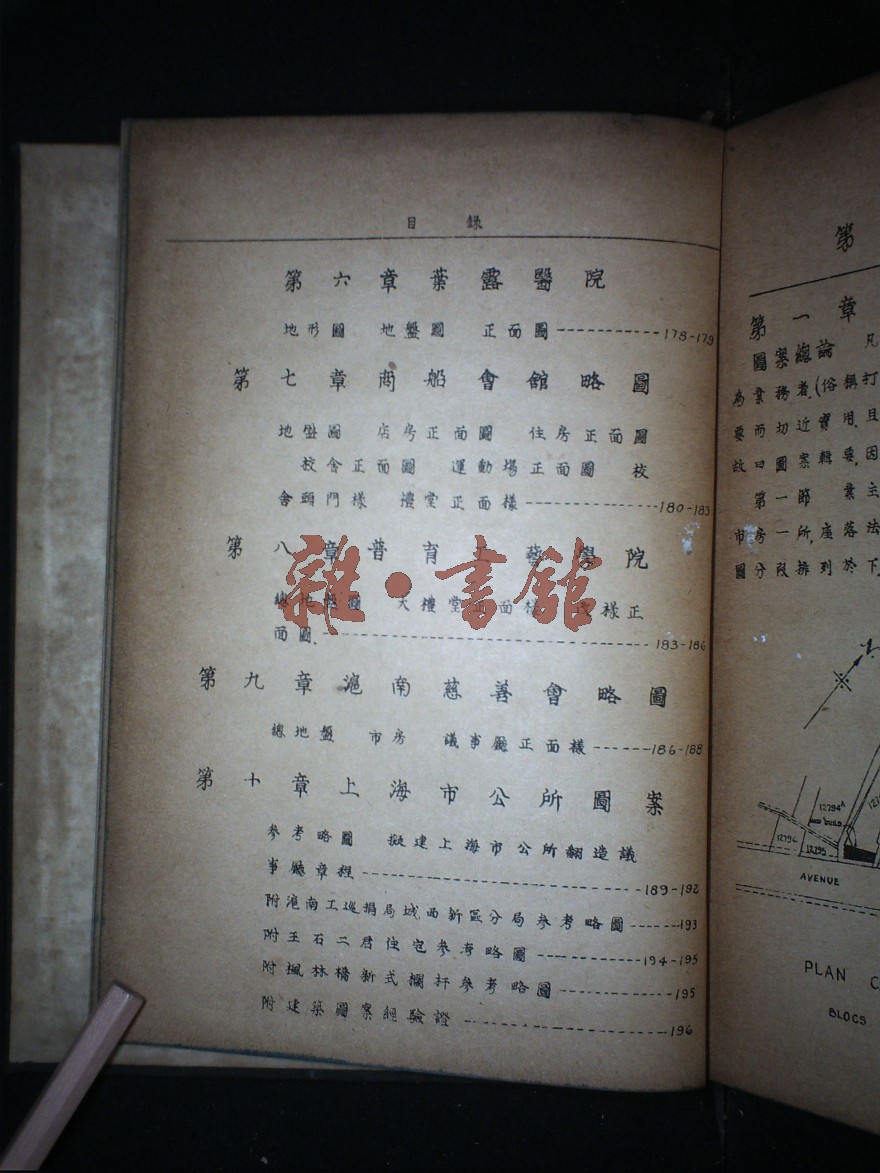 目錄
第六章葉露醫院
地形圖 地盤圖 正面圖-----------178-179
第七章商船會館略圖
地盤圖 店房正面圖 住房正面圖
校舍正面圖 運動場正面圖 校
舍頭門樣 禮堂正面樣---------------180-183
第八章普育工藝學院
總地盤圖 大禮堂正面樣 正樣正
面圖.-----------------------------183-186
第九章滬南慈善會略圖
總地盤 市房 議事廳正面樣------186-188
第十章上海市公所圖案
參考略圖 擬建上海市公所翻造議
事廳章程-----------------------------189-192
附滬南工巡捐局城西新區分局參考略圖-----193
附王石二君住宅參考略圖-----------194-195
附楓林橋新式欄杆參考略圖-----------195
附建築圖案經驗證-------------------196
雜·書館
第
第一章
圖案總論 凡
為業務者,(俗稱打
要而切近實用,且
故曰圖案輯要,因
第一節 業主
市房一所,座落法
圖分段排列於下
12794A
12794
12795
AVENUE
PLAN
BLOCS